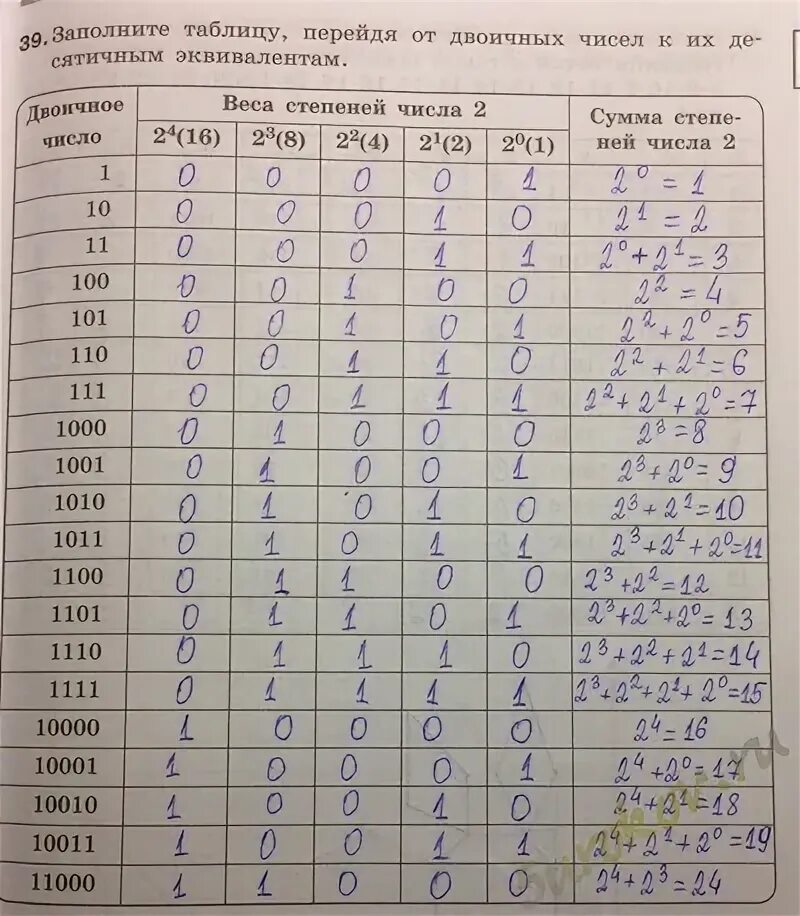 39. Заполните таблицу, перейдя от двоичных чисел к их де-
сятичным эквивалентам.
Двоичное число Веса степеней числа 2 Сумма степе-
ней числа 2
2⁴(16) 2³(8) 2²(4) 2¹(2) 2⁰(1)
1 0 0 0 0 1 2⁰ = 1
10 0 0 0 1 0 2¹ = 2
11 0 0 0 1 1 2⁰ + 2¹ = 3
100 0 0 1 0 0 2² = 4
101 0 0 1 0 1 2² + 2⁰ = 5
110 0 0 1 1 0 2² + 2¹ = 6
111 0 0 1 1 1 2² + 2¹ + 2⁰ = 7
1000 0 1 0 0 0 2³ = 8
1001 0 1 0 0 1 2³ + 2⁰ = 9
1010 0 1 0 1 0 2³ + 2¹ = 10
1011 0 1 0 1 1 2³ + 2¹ + 2⁰ = 11
1100 0 1 1 0 0 2³ + 2² = 12
1101 0 1 1 0 1 2³ + 2² + 2⁰ = 13
1110 0 1 1 1 0 2³ + 2² + 2¹ = 14
1111 0 1 1 1 1 2³ + 2² + 2¹ + 2⁰ = 15
10000 1 0 0 0 0 2⁴ = 16
10001 1 0 0 0 1 2⁴ + 2⁰ = 17
10010 1 0 0 1 0 2⁴ + 2¹ = 18
10011 1 0 0 1 1 2⁴ + 2¹ + 2⁰ = 19
11000 1 1 0 0 0 2⁴ + 2³ = 24